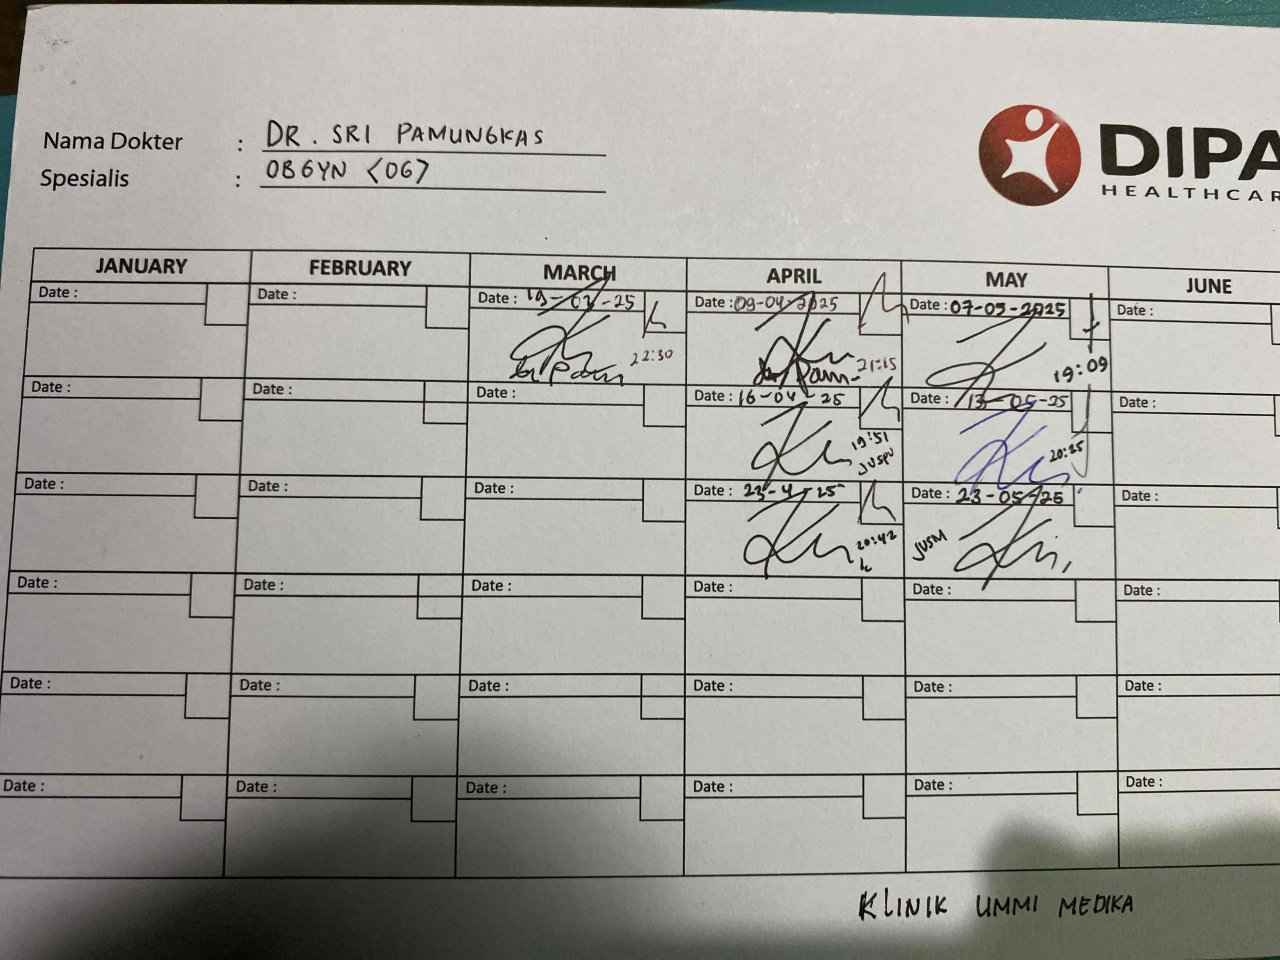 Nama Dokter : DR. SRI PAMUNGKAS
Spesialis : OBGYN <OG>
DIPA
HEALTHCAR
JANUARY FEBRUARY MARCH APRIL MAY JUNE
Date : Date : Date : 19-03-25 Date : 09-04-2025 Date : 07-05-2025 Date :
22:30 21:15 19:09
dr Pam dr Pam
Date : Date : Date : Date : 16-04-25 Date : 13-05-25 Date :
19:51 20:25
Date : Date : Date : Date : 23-4-25 Date : 23-05-25 Date :
20:42 JUSM
Date : Date : Date : Date : Date : Date :
Date : Date : Date : Date : Date : Date :
Date : Date : Date : Date : Date : Date :
KLINIK UMMI MEDIKA